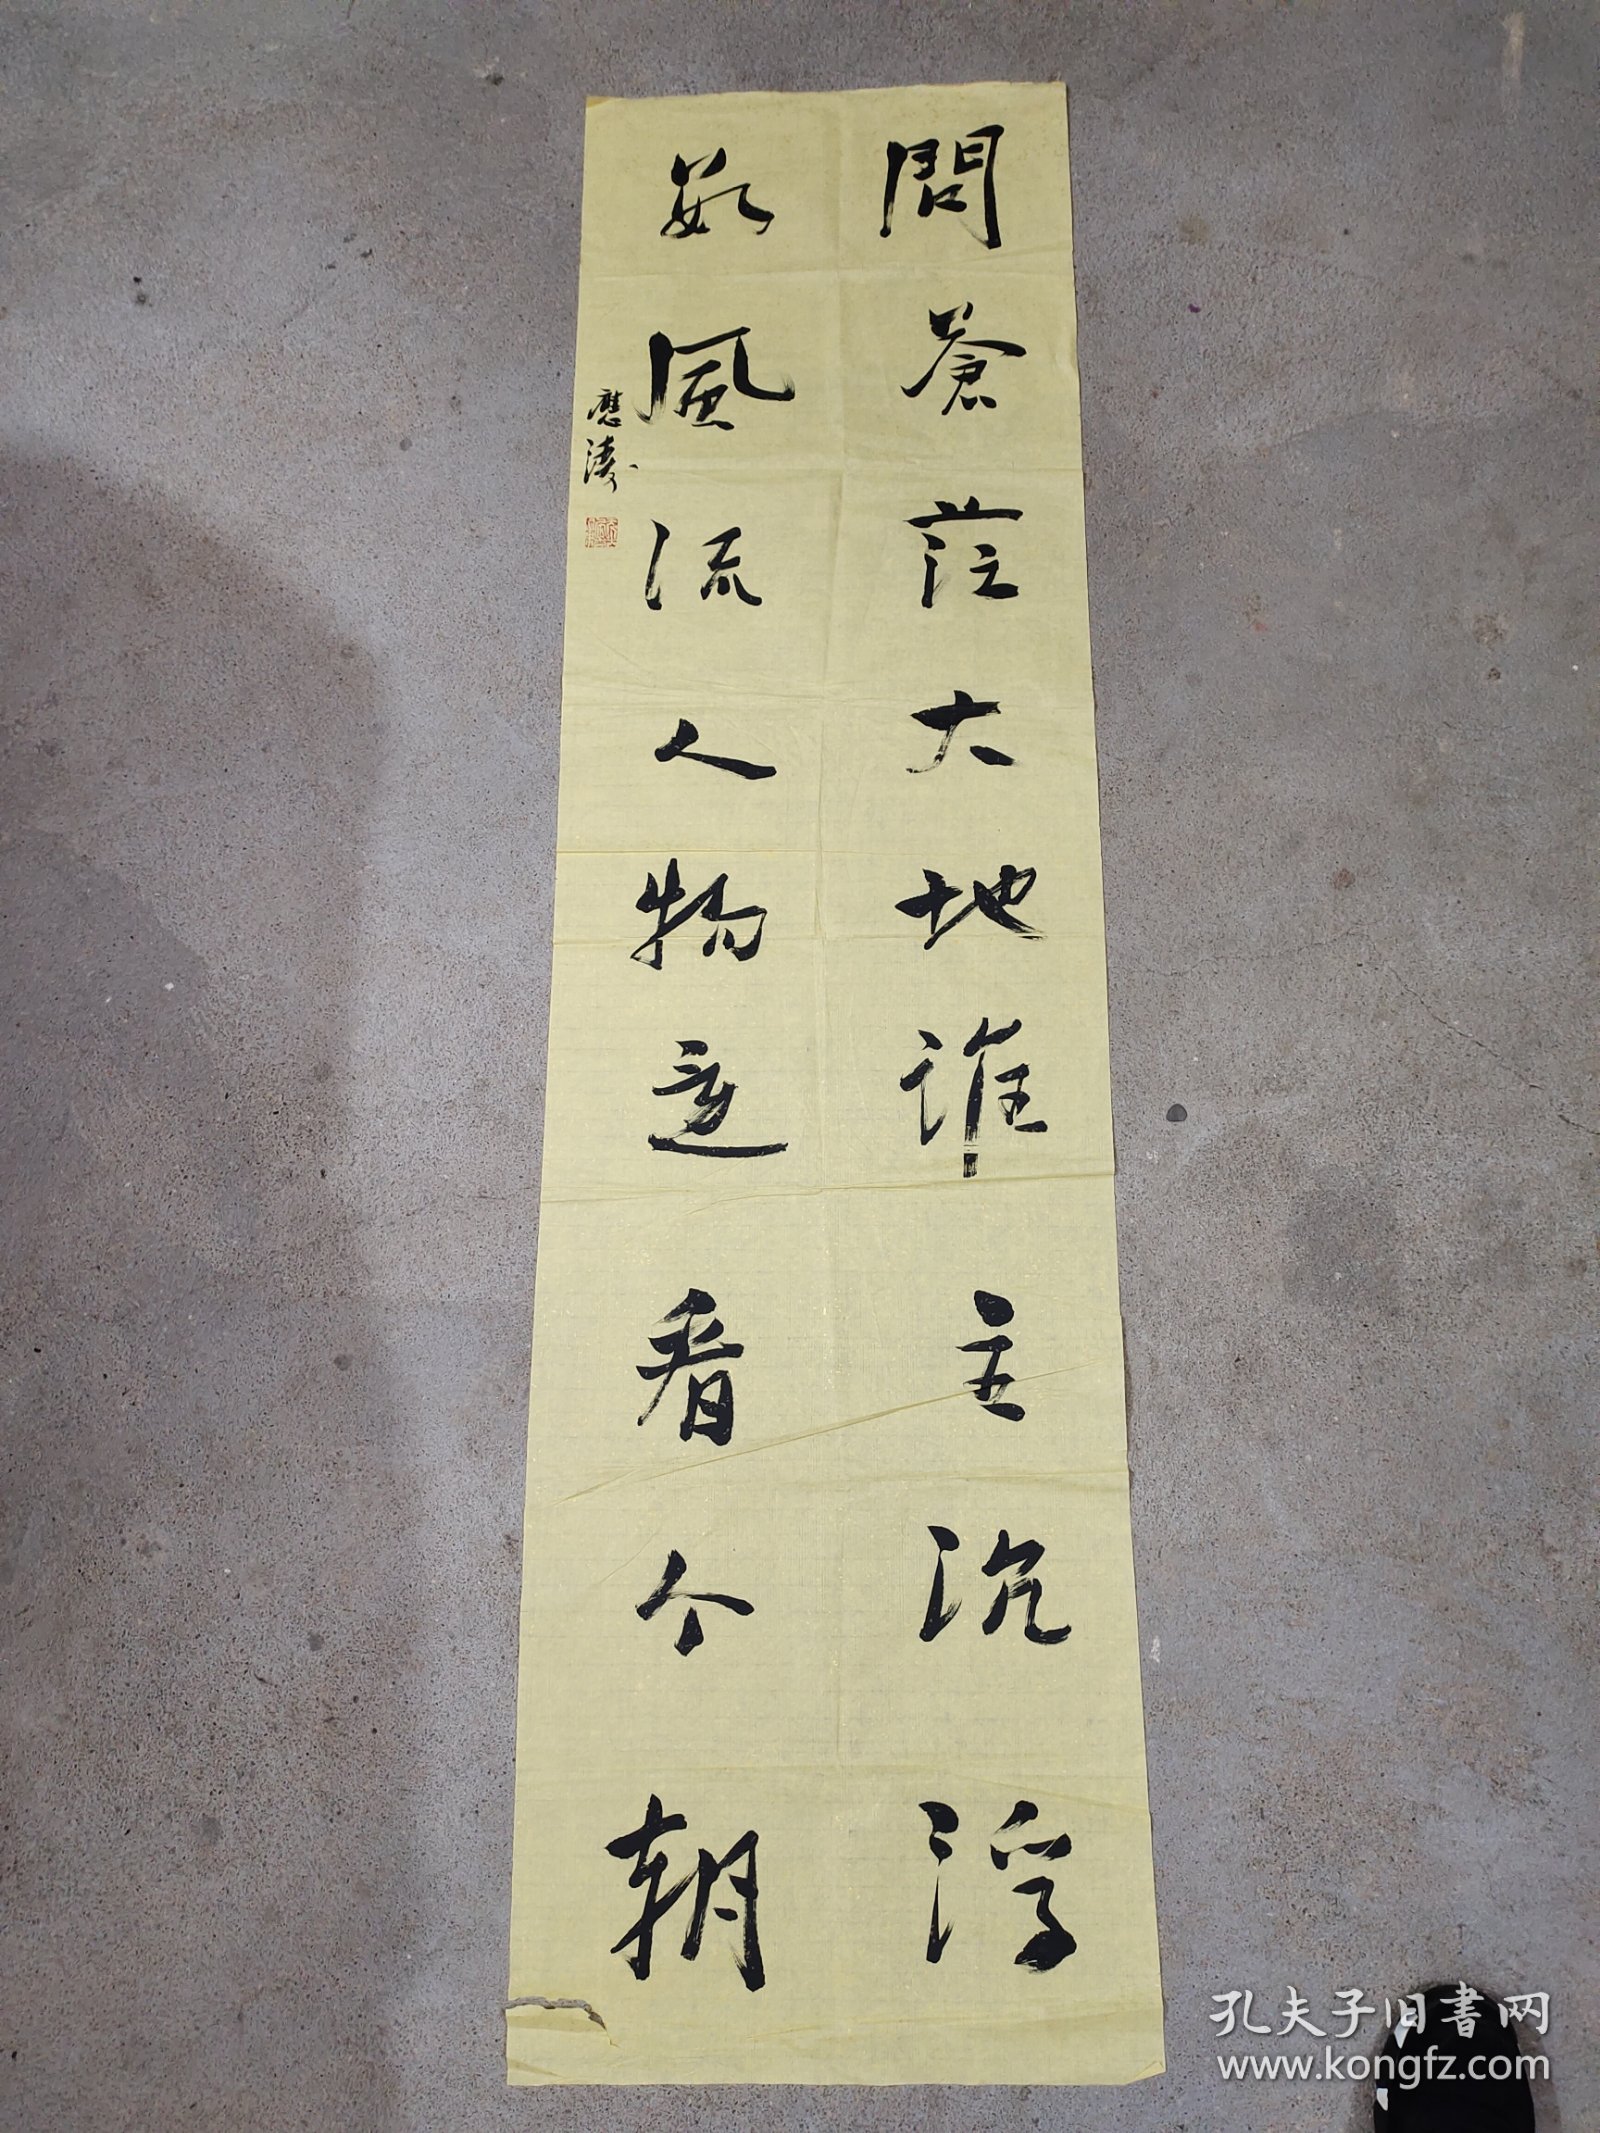 問蒼茫大地誰主沉浮
數風流人物還看今朝
應濤
孔夫子旧書网
www.kongfz.com